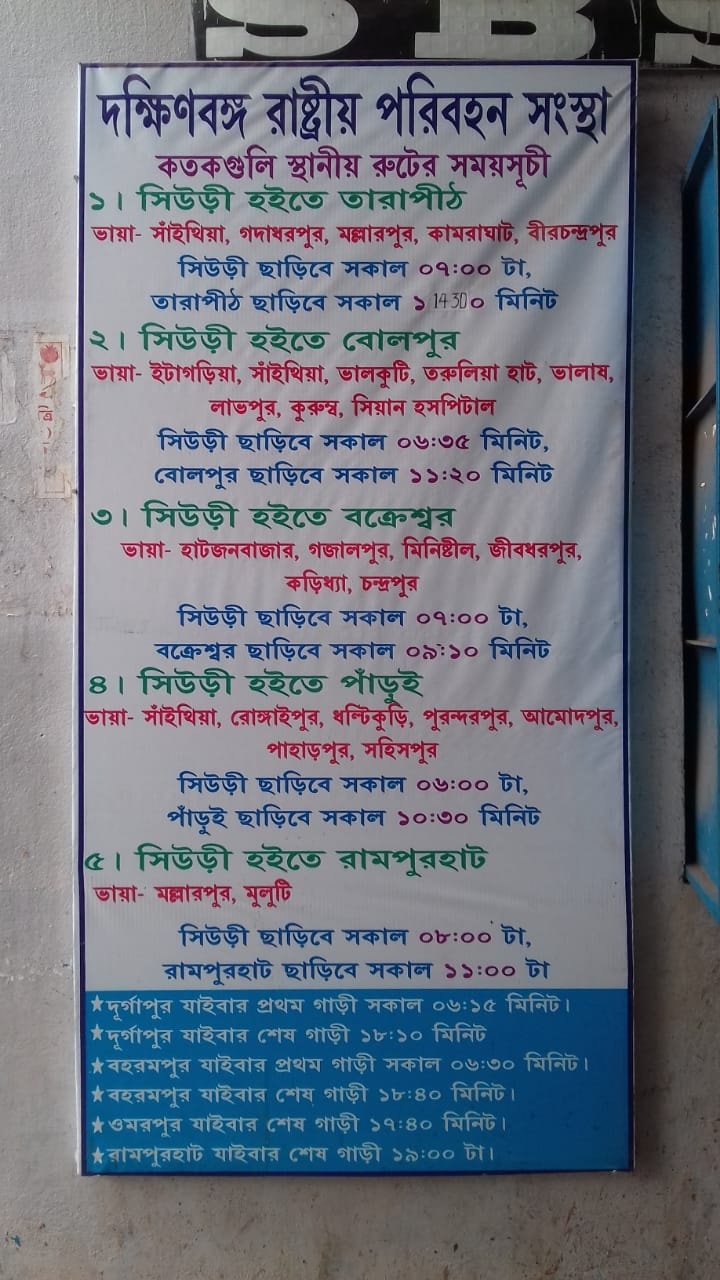 SBS
দক্ষিণবঙ্গ রাষ্ট্রীয় পরিবহন সংস্থা
কতকগুলি স্থানীয় রুটের সময়সূচী
১। সিউড়ী হইতে তারাপীঠ
ভায়া- সাঁইথিয়া, গদাধরপুর, মল্লারপুর, কামরাঘাট, বীরচন্দ্রপুর
সিউড়ী ছাড়িবে সকাল ০৭:০০ টা,
তারাপীঠ ছাড়িবে সকাল ১ 14 30 ০ মিনিট
২। সিউড়ী হইতে বোলপুর
ভায়া- ইটাগড়িয়া, সাঁইথিয়া, ভালকুটি, তরুলিয়া হাট, ভালাষ,
লাভপুর, কুরুম্ব, সিয়ান হসপিটাল
সিউড়ী ছাড়িবে সকাল ০৬:৩৫ মিনিট,
বোলপুর ছাড়িবে সকাল ১১:২০ মিনিট
৩। সিউড়ী হইতে বক্রেশ্বর
ভায়া- হাটজনবাজার, গজালপুর, মিনিষ্টীল, জীবধরপুর,
কড়িধ্যা, চন্দ্রপুর
সিউড়ী ছাড়িবে সকাল ০৭:০০ টা,
বক্রেশ্বর ছাড়িবে সকাল ০৯:১০ মিনিট
৪। সিউড়ী হইতে পাঁড়ুই
ভায়া- সাঁইথিয়া, রোঙ্গাইপুর, ধল্টিকুড়ি, পুরন্দরপুর, আমোদপুর,
পাহাড়পুর, সহিসপুর
সিউড়ী ছাড়িবে সকাল ০৬:০০ টা,
পাঁড়ুই ছাড়িবে সকাল ১০:৩০ মিনিট
৫। সিউড়ী হইতে রামপুরহাট
ভায়া- মল্লারপুর, মুলুটি
সিউড়ী ছাড়িবে সকাল ০৮:০০ টা,
রামপুরহাট ছাড়িবে সকাল ১১:০০ টা
★দূর্গাপুর যাইবার প্রথম গাড়ী সকাল ০৬:১৫ মিনিট।
★দূর্গাপুর যাইবার শেষ গাড়ী ১৮:১০ মিনিট
★বহরমপুর যাইবার প্রথম গাড়ী সকাল ০৬:৩০ মিনিট।
★বহরমপুর যাইবার শেষ গাড়ী ১৮:৪০ মিনিট।
★ওমরপুর যাইবার শেষ গাড়ী ১৭:৪০ মিনিট।
★রামপুরহাট যাইবার শেষ গাড়ী ১৯:০০ টা।